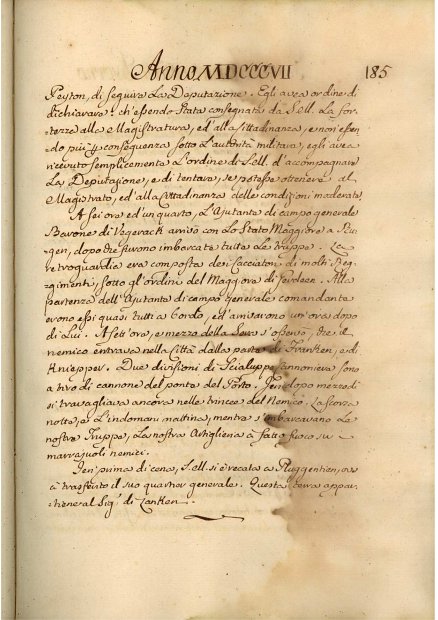 Anno MDCCCVII 185
Peyron, di seguire la Deputazione. Egli avea ordine di
dichiarare: ch'essendo stata consegnata da S.M. la for-
tezza alla Magistratura, ed alla Cittadinanza, e non essen-
do più p conseguenza sotto l'autorità militare, egli avea
ricevuto semplicemente l'ordine di S.M. d'accompagnare
la Deputazione, e di tentare, se potesse ottenere al
Magistrato, ed alla Cittadinanza delle condizioni moderate.
A sei ore ed un quarto, l'Ajutante di campo generale
Barone di Vegesack arrivò con lo Stato Maggiore a Ru-
gen, dopo che furono imbarcate tutte le truppe. La
retroguardia era composta dei Cacciatori di molti Reg-
gimenti, sotto gl'ordini del Maggiore di Gerdeen. Alla
partenza dell'Ajutante di campo generale comandante
erono essi quasi tutti a bordo, ed arrivarono un'ora dopo
di lui. A sett'ore, e mezzo della sera s'osservò, che il
nemico entrava nella Città dalla parte di Franken, e di
Kniepper. Due divisioni di Scialuppe cannoniere sono
a tiro di cannone del ponte del Porto. Jeri dopo mezzodì
si travagliava ancora nelle trincee del Nemico. La scorsa
notte, e l'indomani mattina, mentre s'imbarcavano le
nostre Truppe, la nostra Artiglieria à fatto fuoco su
marrasuoli nemici.
Jeri prima di cena, S.M. si è recata a Pluggentien, ove
à trasferito il suo quartier generale. Questa terra appar-
tiene al Sig.r di Lanken.